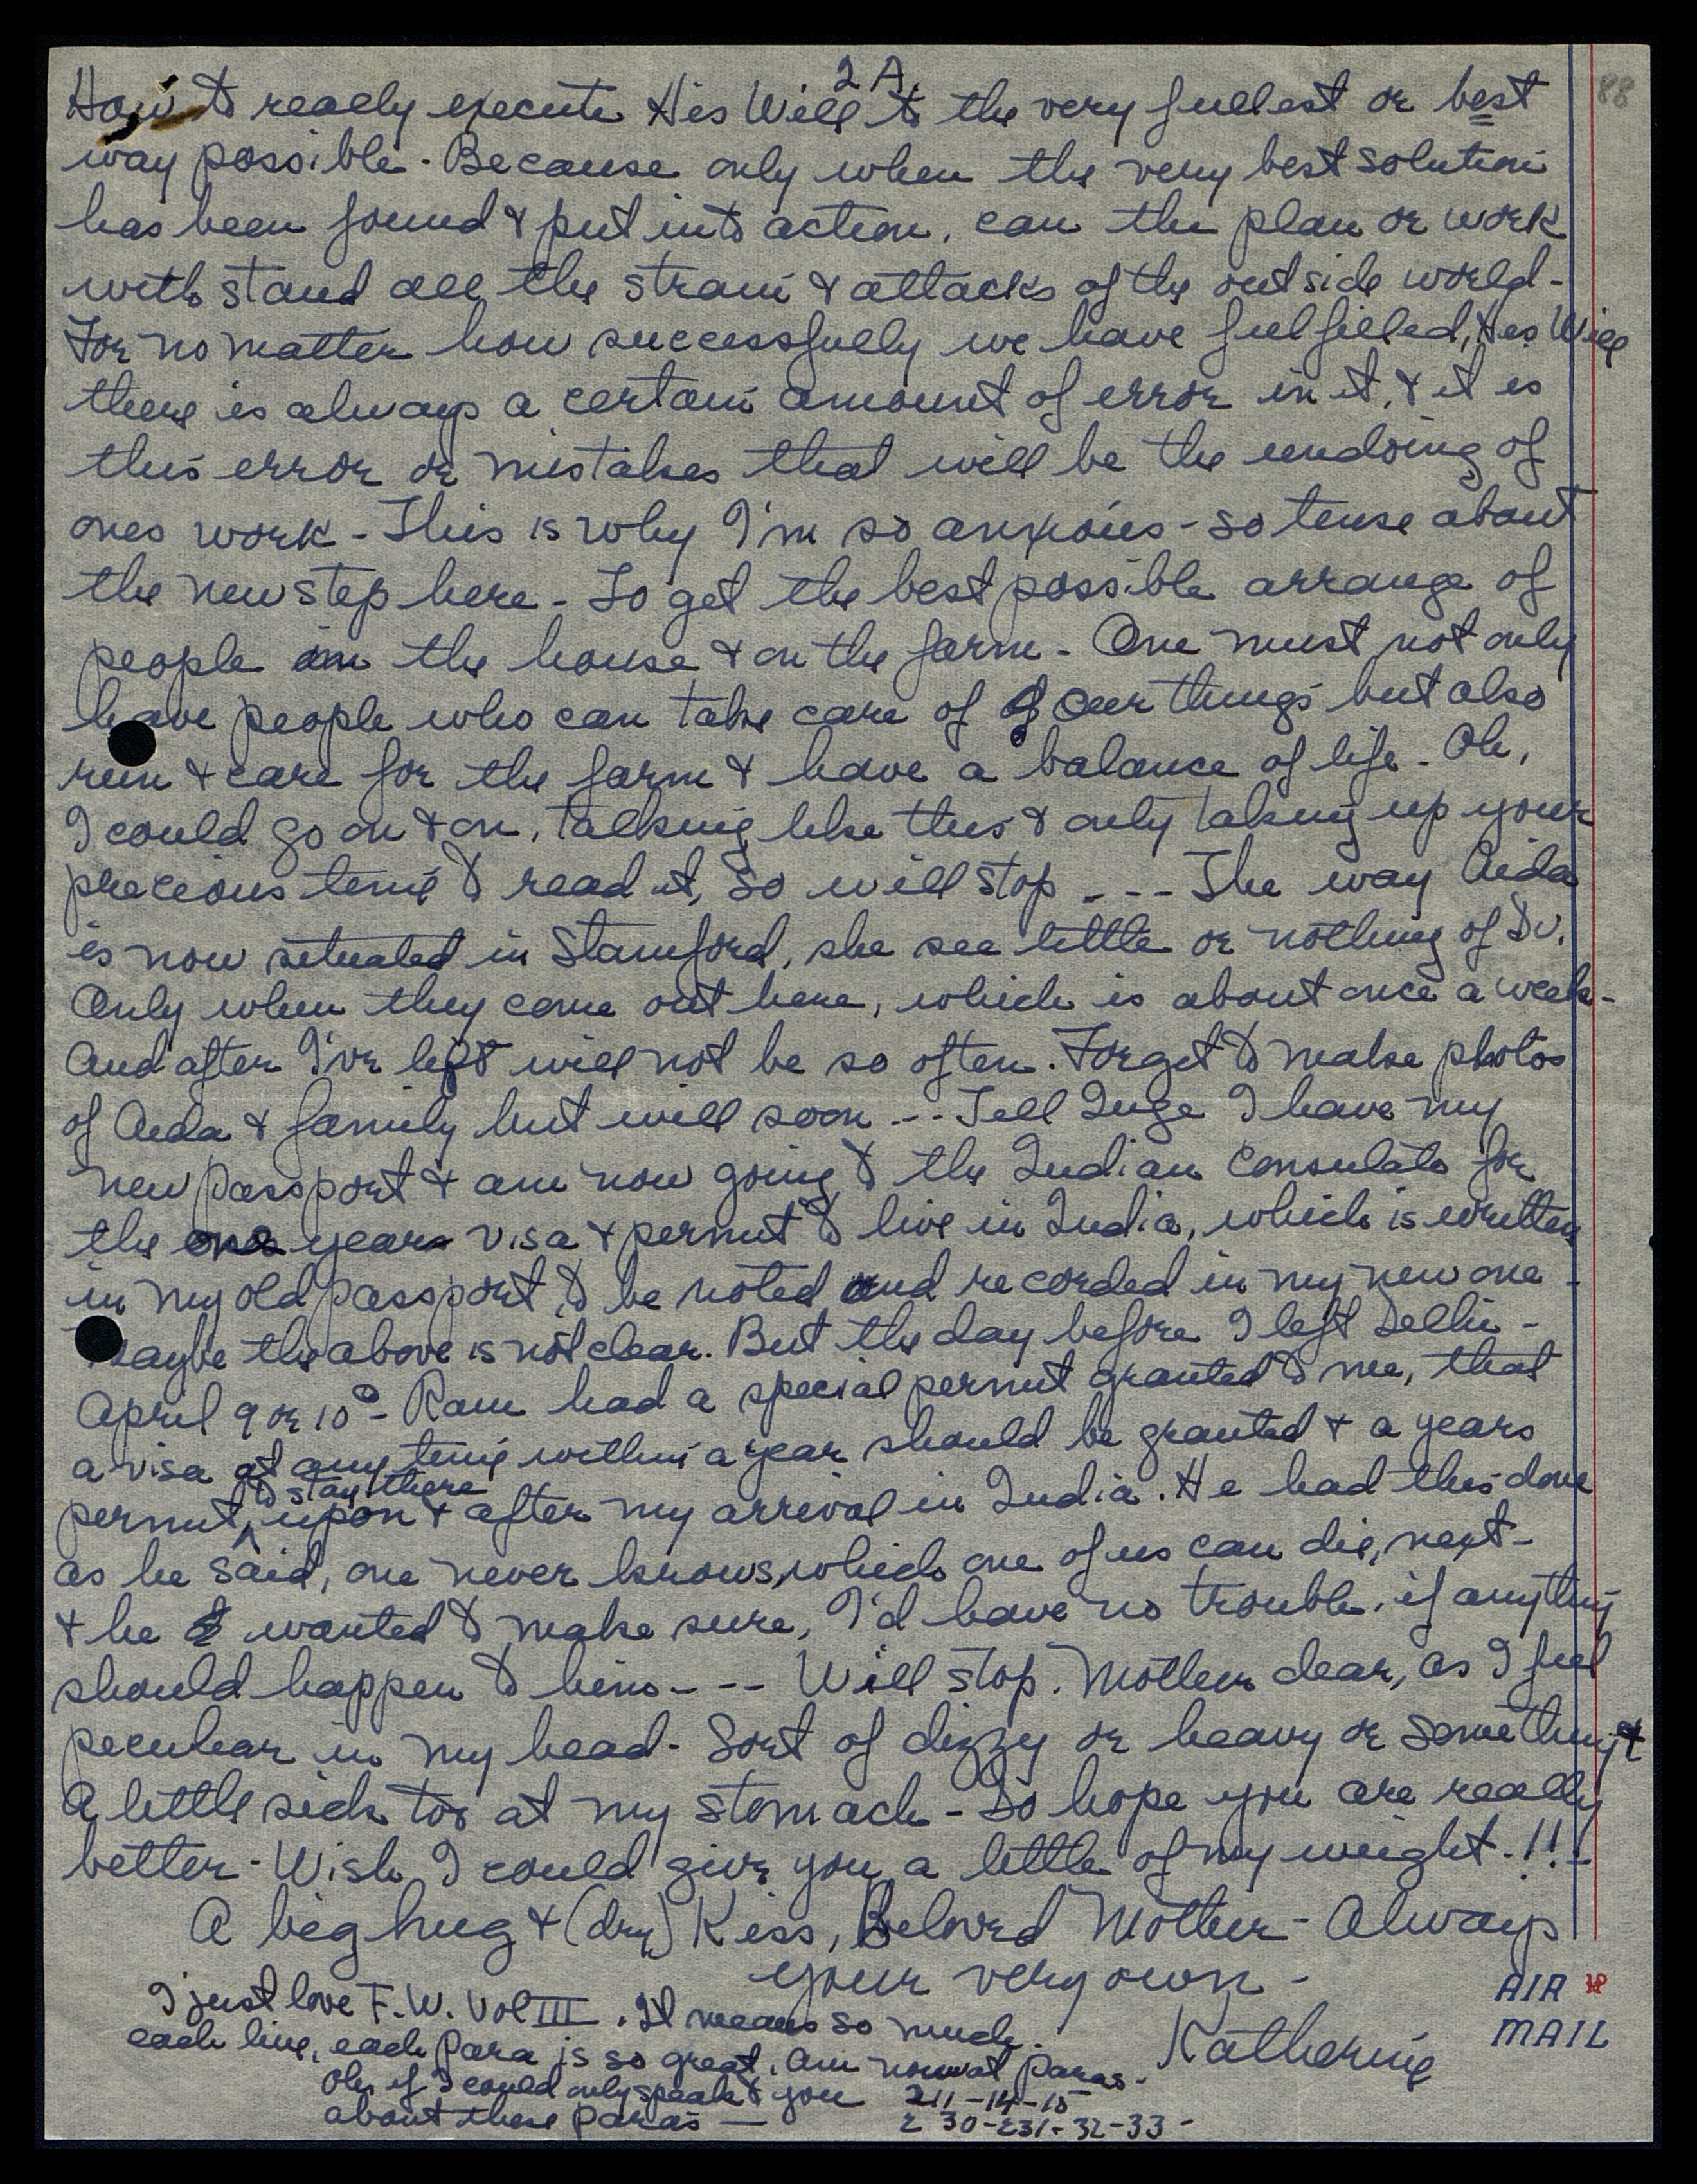 2A
88
How to really execute His Will to the very fullest or best
way possible. Because only when the very best solution
has been found & put into action, can the plan or work
with stand all the strain & attacks of the outside world -
For no matter how successfully we have fulfilled, His Will
there is always a certain amount of error in it, & it is
this error or mistakes that will be the undoing of
ones work - This is why I'm so anxious - so tense about
the new step here - To get the best possible arrange of
people in the house & on the farm - One must not only
have people who can take care of our things but also
run & care for the farm & have a balance of life - Oh,
I could go on & on, talking like this & only taking up your
precious time to read it, So will stop - - - The way Aida
is now situated in Stamford, she see little or nothing of Sv.
Only when they come out here, which is about once a week -
And after I've left will not be so often. Forget to make photos
of Aida & family but will soon - - - Tell Inge I have my
new passport & am now going to the Indian Consulate for
the years visa & permit to live in India, which is written
in my old passport, to be noted and recorded in my new one -
Maybe the above is not clear. But the day before I left Delhi -
April 9 or 10º - Ram had a special permit granted to me, that
a visa at any time within a year should be granted & a years
to stay there
permit, upon & after my arrival in India. He had this done
as he said, one never knows, which one of us can die, next -
& he wanted to make sure, I'd have no trouble, if anything
should happen to him - - - Will stop. Mother dear, as I feel
peculiar in my head - Sort of dizzy or heavy or something &
A little sick too at my stomach - Do hope you are really
better - Wish I could give you a little of my weight - !! -
A big hug & (dry) Kiss, Beloved Mother - Always
your very own -
Katherine
AIR
MAIL
I just love F.W. Vol III. It means so much.
each line, each para is so great. Am now at paras -
Oh, if I could only speak to you 211-14-15
about these paras — 230-231-32-33 -